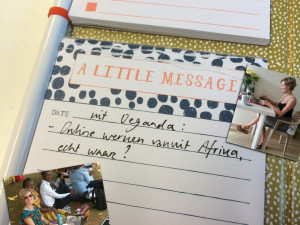 A LITTLE MESSAGE
DATE uit Oeganda:
- Online werven vanuit Afrika,
echt waar?